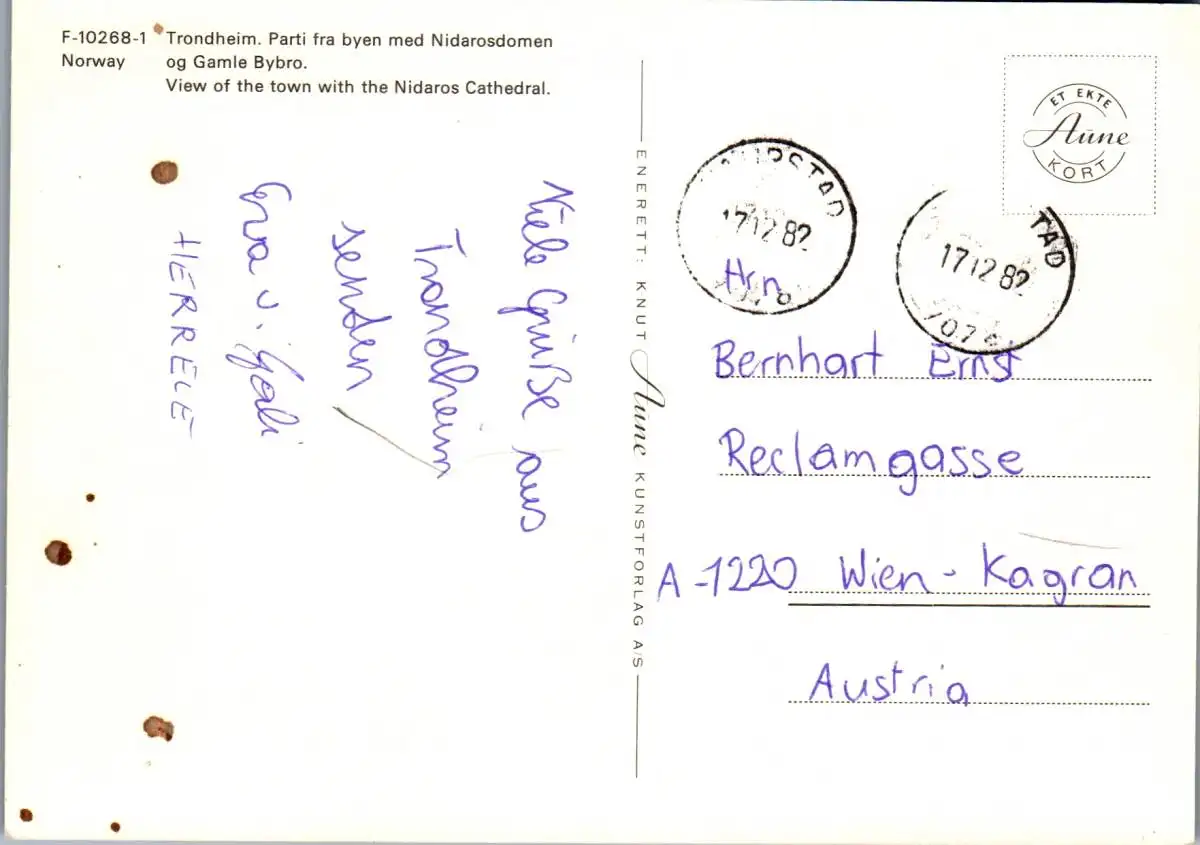 F-10268-1 Trondheim. Parti fra byen med Nidarosdomen
Norway og Gamle Bybro.
View of the town with the Nidaros Cathedral.
Viele Grüße aus
Trondheim
senden
Eva u. Gabi
HERRELE
ENERETT: KNUT Aune KUNSTFORLAG A/S
ET EKTE
Aune
KORT
17 12 82
TAD
17 12 82
Hrn
Bernhart Ernst
Reclamgasse
A-1220 Wien - Kagran
Austria